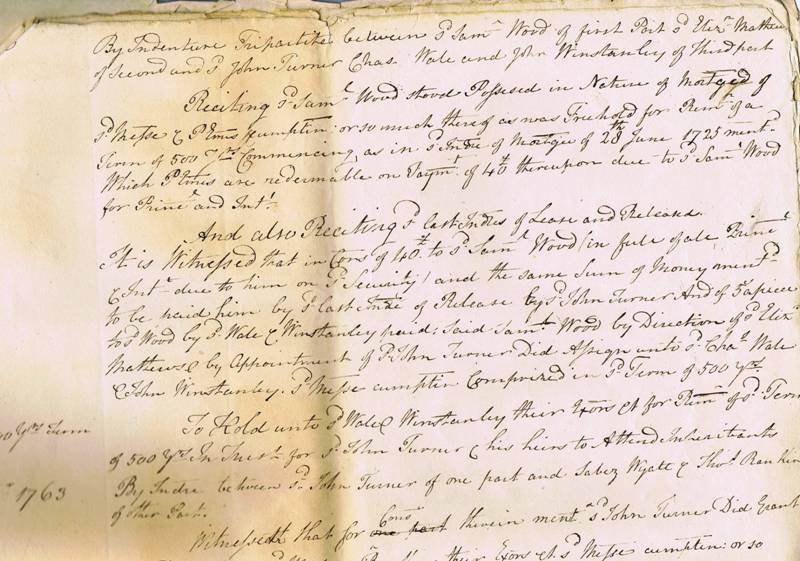 By Indenture Tripartite between sd Saml Wood of first Part sd Elizth Mathews
of Second and sd John Turner Chas Wale and John Winstanley of third part
Reciting sd Saml Wood stood Possessed in Nature of Mortgee of
sd Messe & Pmes cumptin: or so much thereof as was Freehold for Remr of a
Term of 500 Yrs Commencing as in sd Indre of Mortgee of 28th June 1725 mentd
Which Pmes are redemable on Paymt of 40£ thereupon due to sd Saml Wood
for Prinl and Intt
And also Reciting sd last Indres of Lease and Release.
It is Witnessed that in Cons of 40£ to sd Saml Wood (in full of all Prinl
& Intt due to him on sd Security) and the same Sum of Money mentd
to be paid him by sd last Indre of Release by sd John Turner And of 5s apiece
to sd Wood by sd Wale & Winstanley paid; Said Saml Wood by Direction of sd Elizth
Mathews & by Appointment of sd John Turner Did Assign unto sd Chas Wale
& John Winstanley. sd Messe cumptin Comprized in sd Term of 500 Yrs.
To Hold unto sd Wale & Winstanley their Exors &c for Remr of sd Term
of 500 Yrs In Trust for sd John Turner & his heirs to Attend Inheritants
Yrs Term
1763
By Indre between sd John Turner of one part and Jabez Wyatt & Thos Rankin
of other Part.
Witnesseth that for one part Cons therein mentd sd John Turner Did Grant
their Exors &c sd Messe cumptin: or so